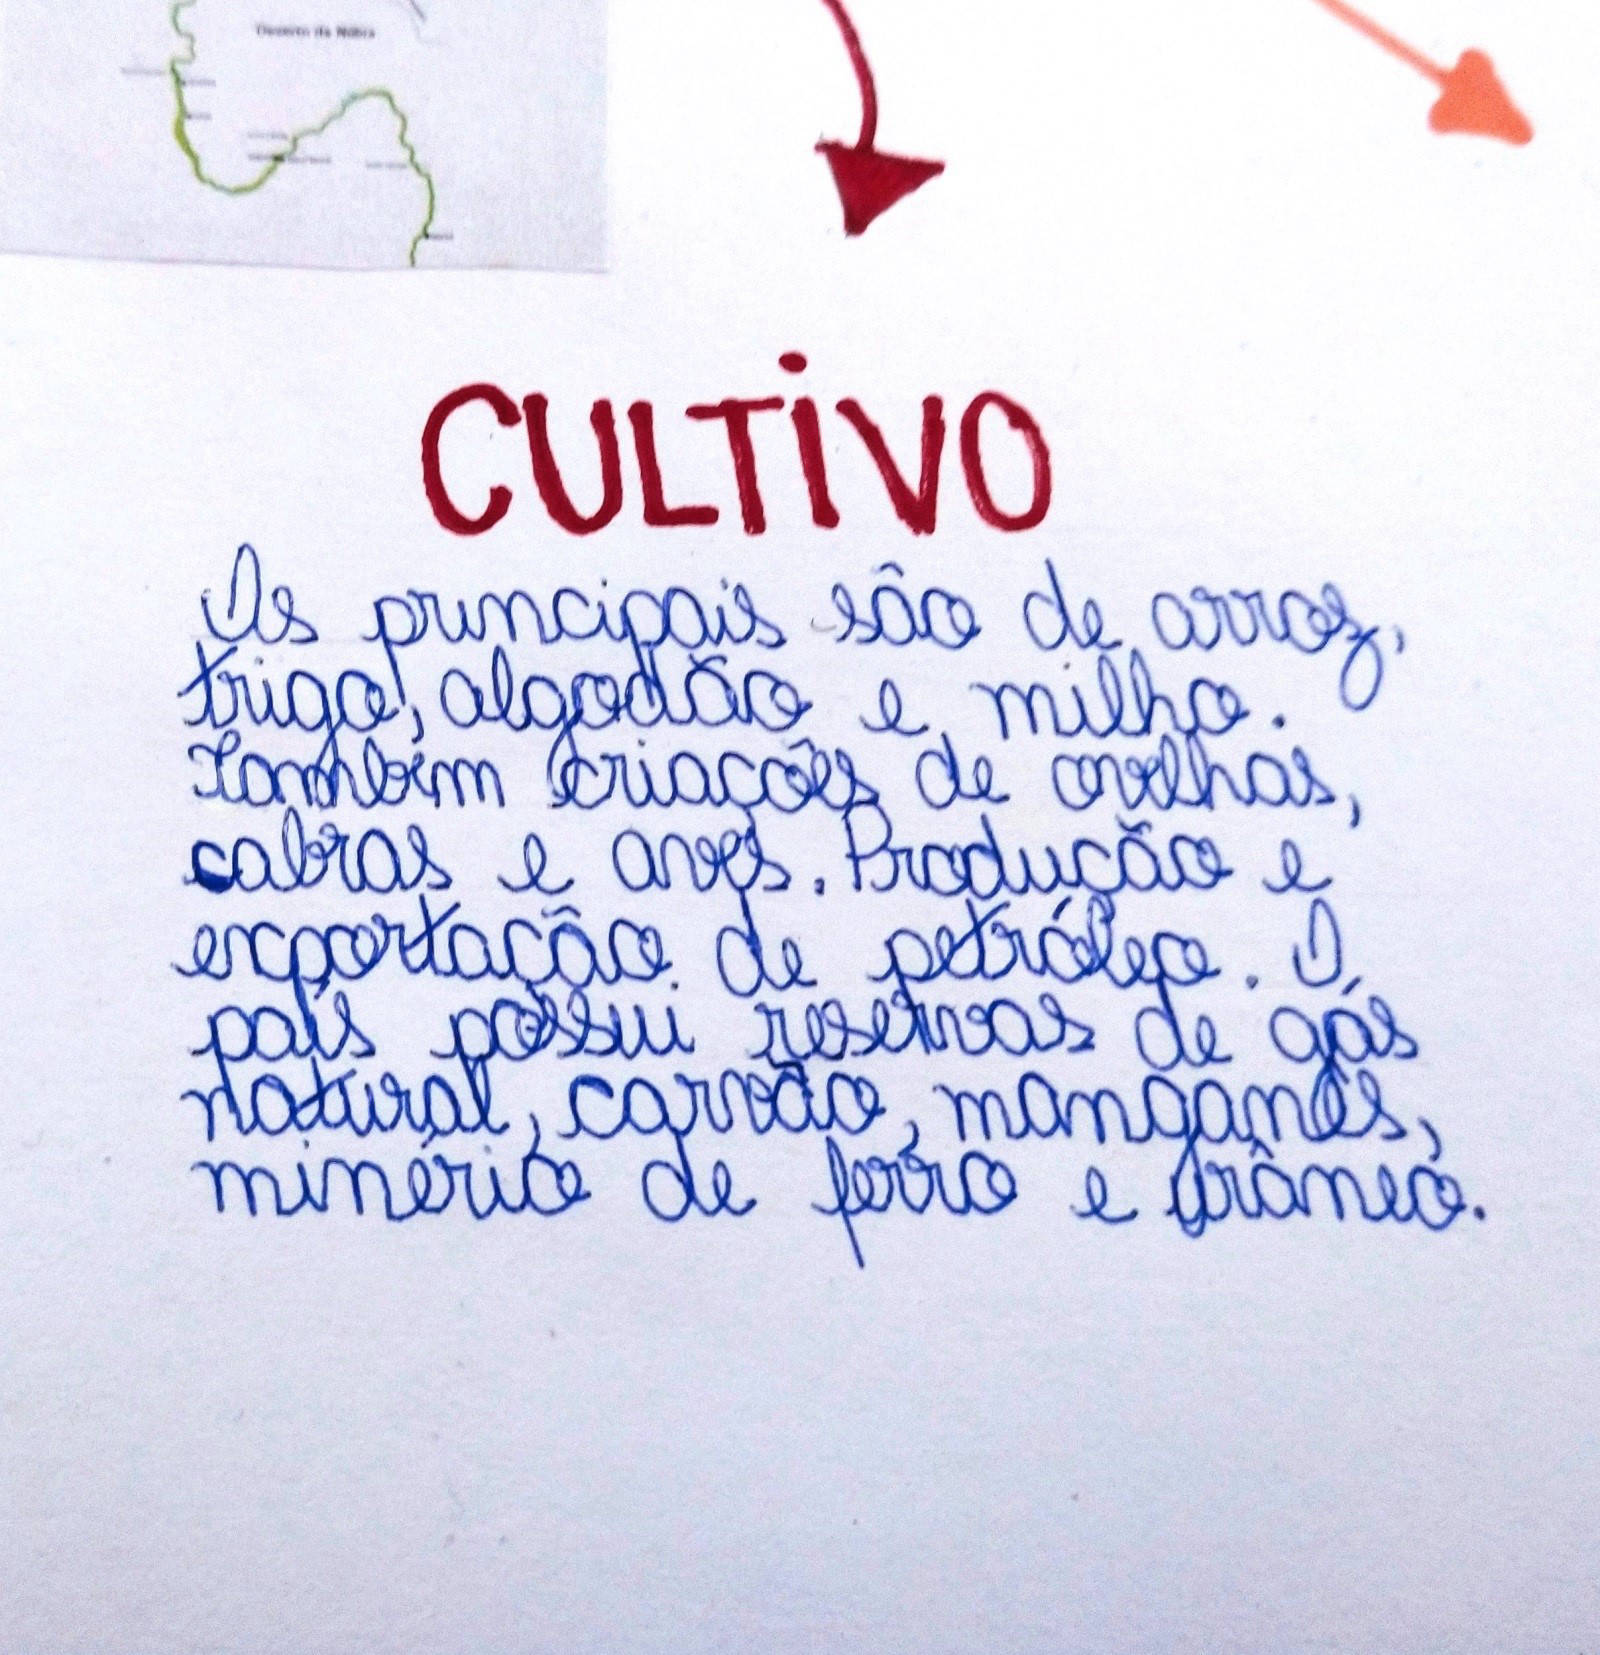 Deserto da Núbia
CULTIVO
Os principais são de arroz,
trigo, algodão e milho.
Também criações de ovelhas,
cabras e aves. Produção e
exportação de petróleo. O
país possui reservas de gás
natural, carvão, manganês,
minério de ferro e urâneo.